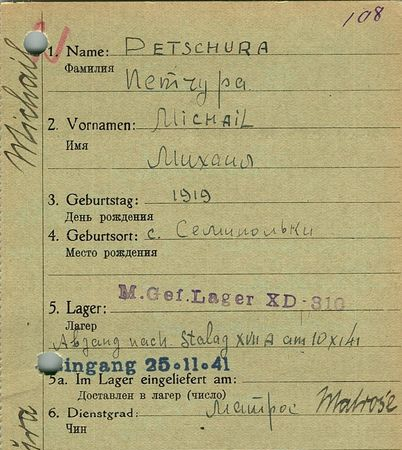 108
1. Name: PETSCHURA
Фамилия
Петчура
2. Vornamen: MICHAIL
Имя
Михаил
3. Geburtstag: 1919
День рождения
4. Geburtsort: с. Семипольки
Место рождения
M.Gef.Lager XD-310
5. Lager:
Лагерь
Abgang nach Stalag XVII A am 10 XI 41
ingang 25.11.41
5a. Im Lager eingeliefert am:
Доставлен в лагерь (число)
6. Dienstgrad: матрос Matrose
Чин
Michail